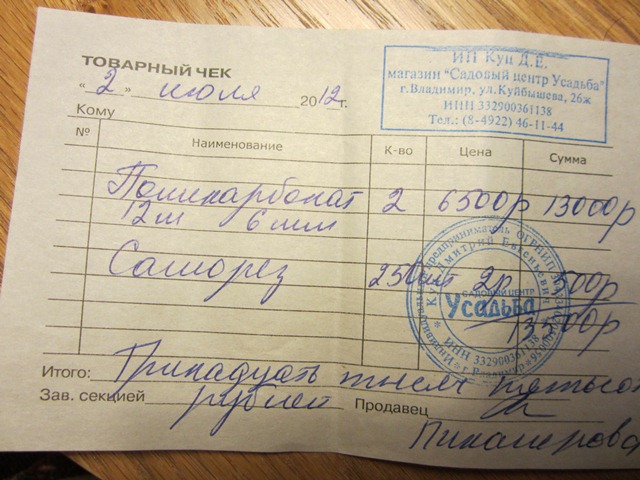 ТОВАРНЫЙ ЧЕК
ИП Куц Д.Е.
магазин "Садовый центр Усадьба"
г.Владимир, ул.Куйбышева, 26ж
ИНН 332900361138
Тел.: (8-4922) 46-11-44
"2" июля 2012г.
Кому
№ Наименование К-во Цена Сумма
Поликарбонат 2 6500р 13000р
12м 6мм
Саморез 250шт 2р 500р
13500р
САДОВЫЙ ЦЕНТР
Усадьба
ИНН 332900361138
г.Владимир
Итого: Тринадцать тысяч пятьсот
Зав. секцией рублей Продавец